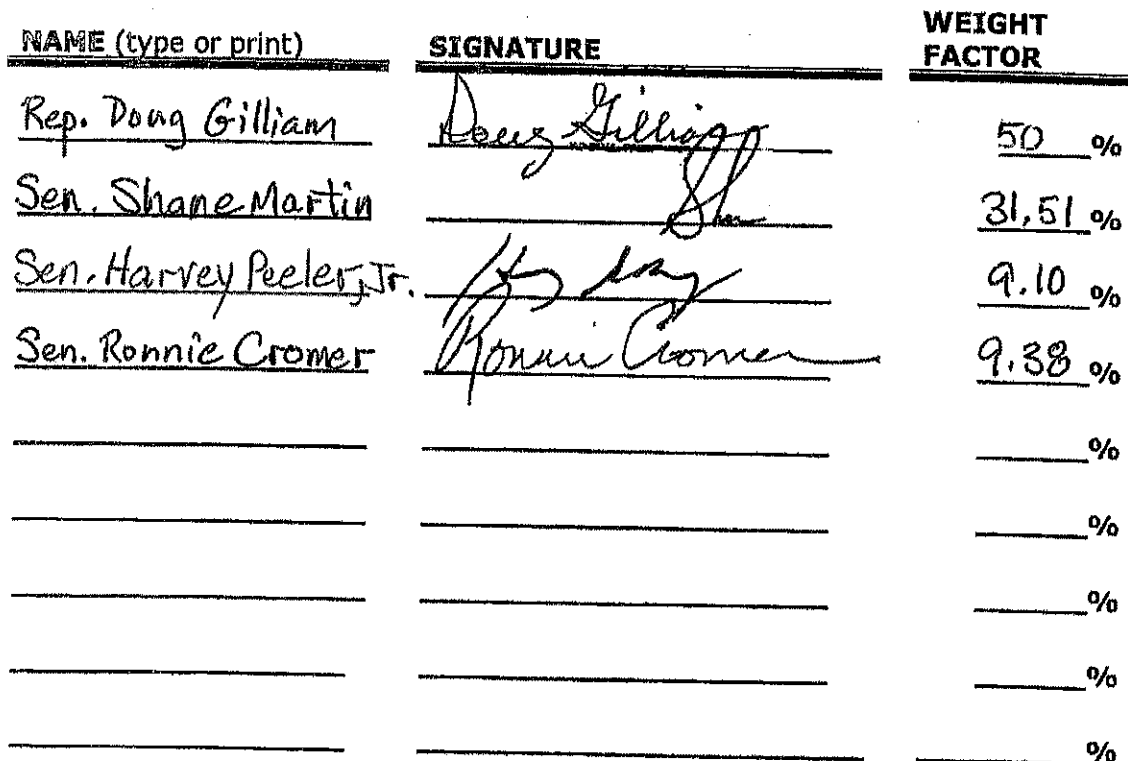 NAME (type or print) SIGNATURE WEIGHT FACTOR
Rep. Doug Gilliam Doug Gilliam 50 %
Sen. Shane Martin 31.51 %
Sen. Harvey Peeler, Jr. 9.10 %
Sen. Ronnie Cromer Ronnie Cromer 9.38 %
%
%
%
%
%